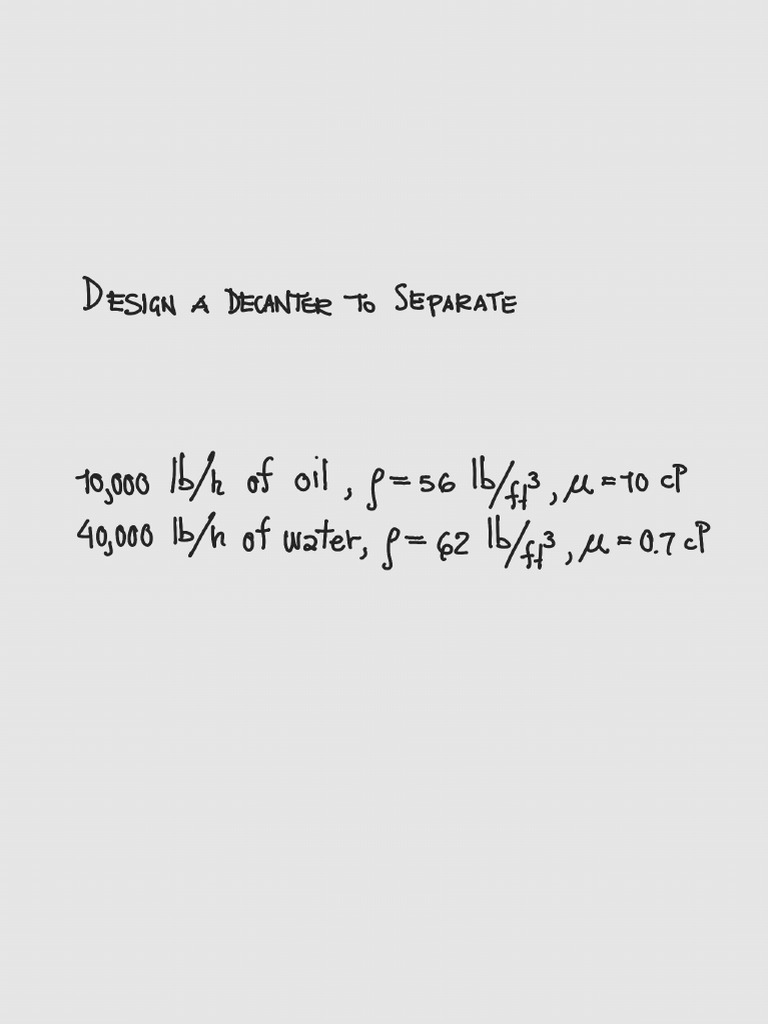 DESIGN A DECANTER TO SEPARATE
10,000 lb/h of oil, ρ = 56 lb/ft³, μ = 10 cP
40,000 lb/h of water, ρ = 62 lb/ft³, μ = 0.7 cP